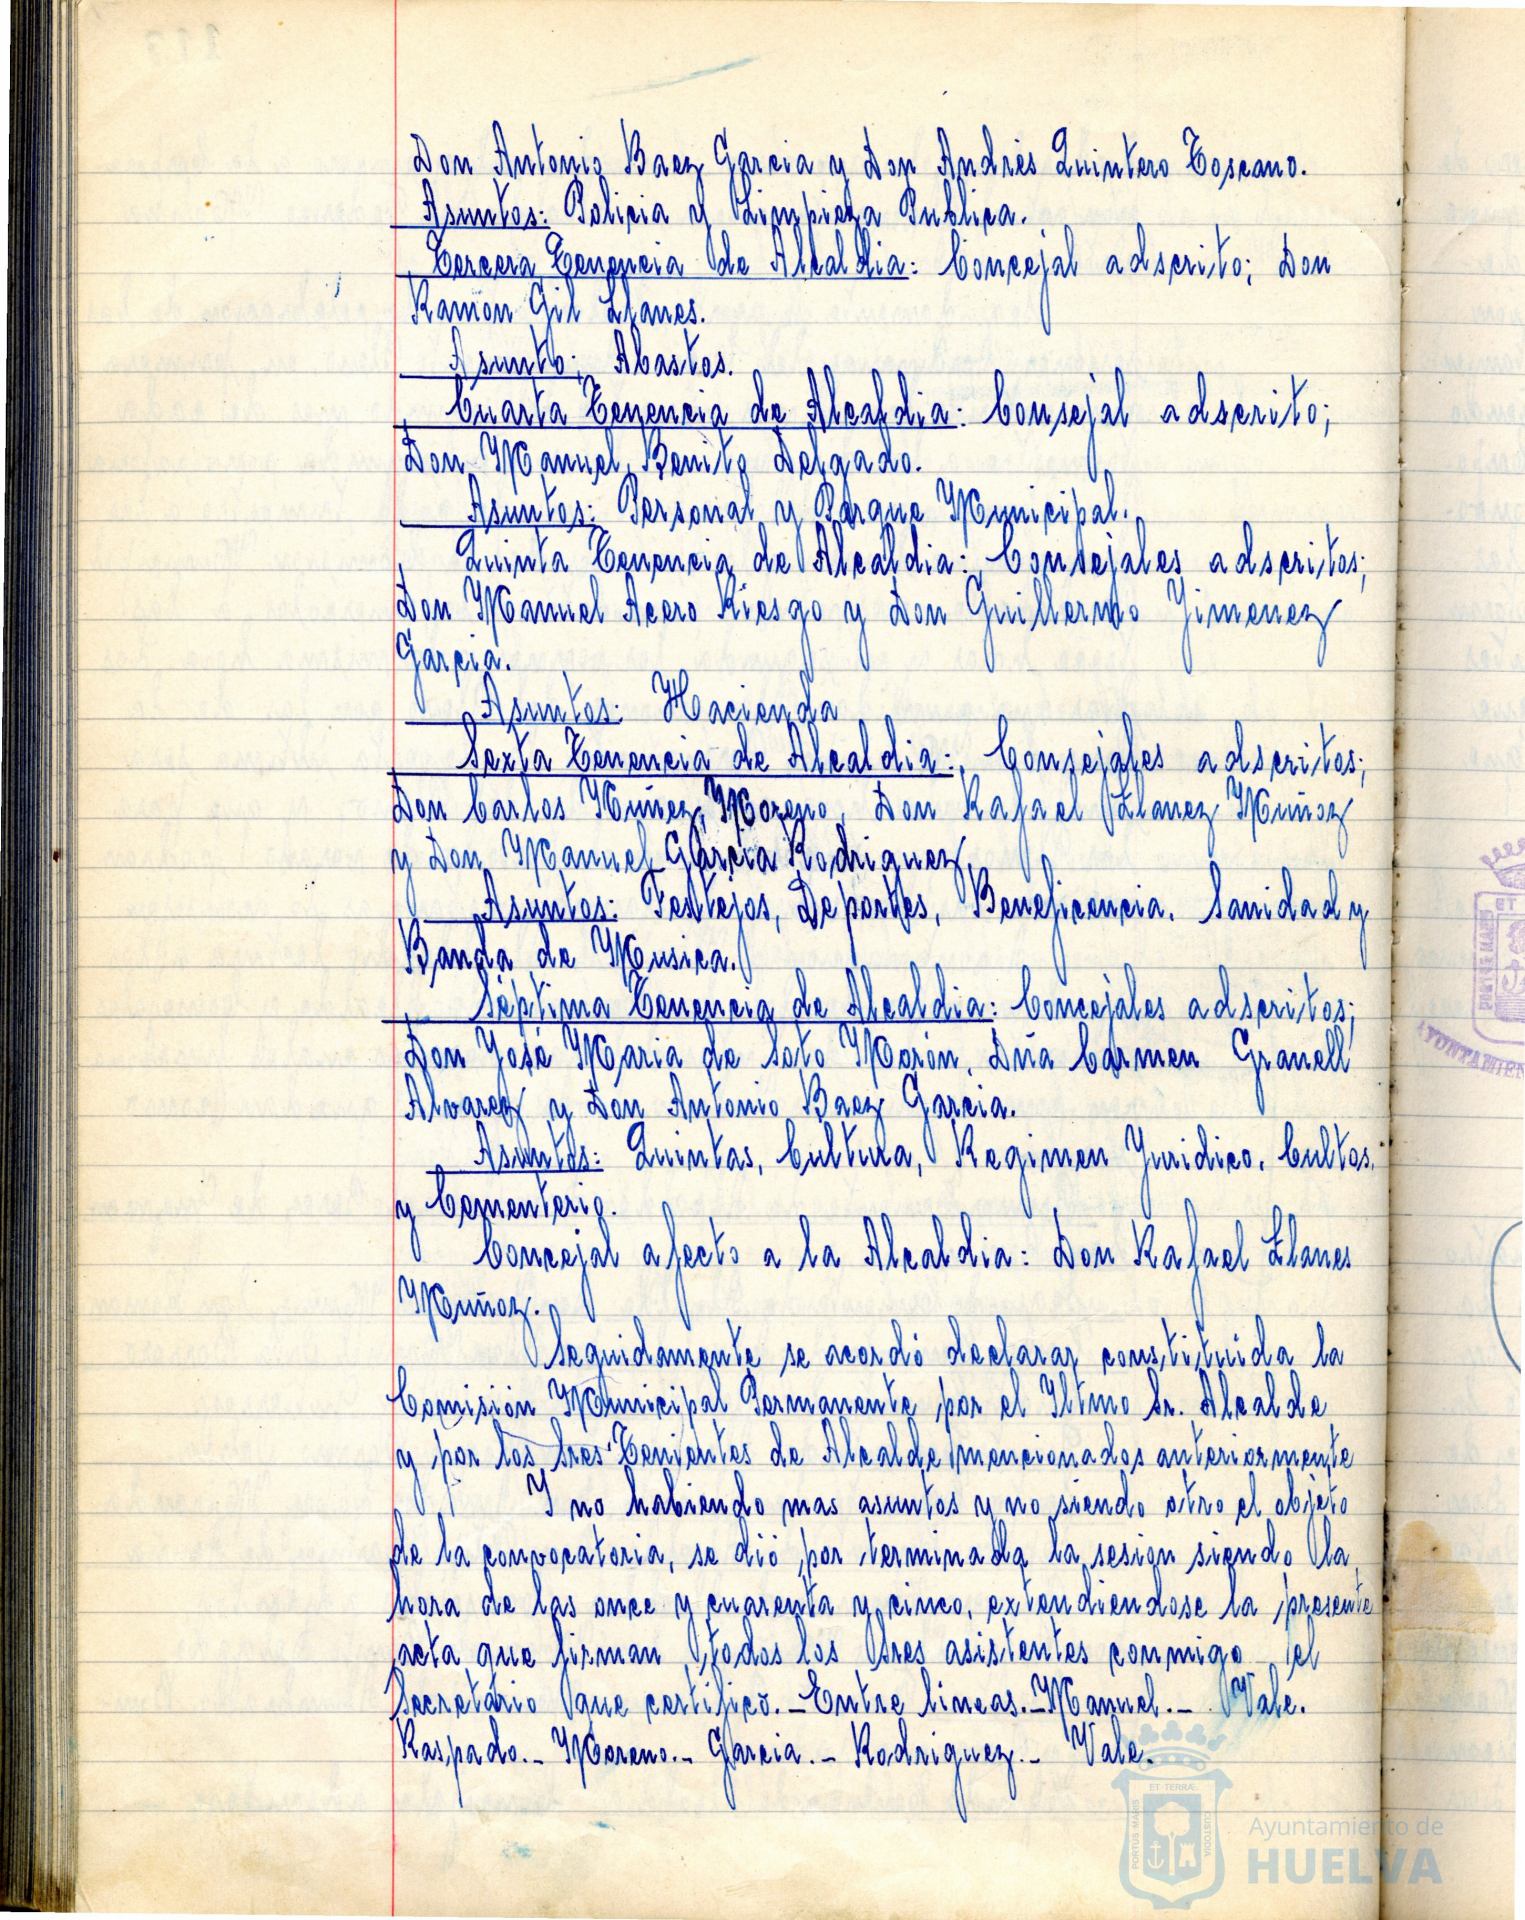 Don Antonio Baez Garcia y Don Andrés Quintero Toscano.
Asuntos: Policia y Limpieza Publica.
Tercera Tenencia de Alcaldia: Concejal adscrito; Don
Ramón Gil Llanes.
Asunto; Abastos.
Cuarta Tenencia de Alcaldia: Consejal adscrito;
Don Manuel Benito Delgado.
Asuntos: Personal y Parque Municipal.
Quinta Tenencia de Alcaldia: Consejales adscritos;
Don Manuel Acero Riesgo y Don Guillermo Jimenez
Garcia.
Asuntos: Hacienda
Sexta Tenencia de Alcaldia: Consejales adscritos;
Don Carlos Nuñez Moreno, Don Rafael Llanez Muñoz
y Don Manuel Garcia Rodriguez
Asuntos: Festejos, Deportes, Beneficencia, Sanidad y
Banda de Musica.
Séptima Tenencia de Alcaldia: Concejales adscritos;
Don José Maria de Soto Morón, Dña Carmen Granell
Alvarez y Don Antonio Baez Garcia.
Asuntos: Quintas, Cultura, Regimen Juridico, Cultos,
y Cementerio.
Concejal afecto a la Alcaldia: Don Rafael Llanes
Muñoz.
Seguidamente se acordó declarar constituida la
Comisión Municipal Permanente por el Iltmo Sr. Alcalde
y por los Sres Tenientes de Alcalde mencionados anteriormente
Y no habiendo mas asuntos y no siendo otro el objeto
de la convocatoria, se dió por terminada la sesion siendo la
hora de las once y cuarenta y cinco, extendiendose la presente
acta que firman todos los Sres asistentes conmigo el
Secretario que certifico.- Entre lineas.- Manuel.- Vale.
Raspado.- Moreno.- Garcia.- Rodriguez.- Vale.
PORTUS MARIS ET TERRAE CUSTODIA
Ayuntamiento de
HUELVA